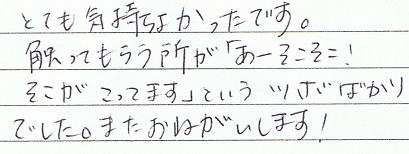 とても気持ちよかったです。
触ってもらう所が「あーそこそこ!
そこがこってます」という ツボばかり
でした。またおねがいします!